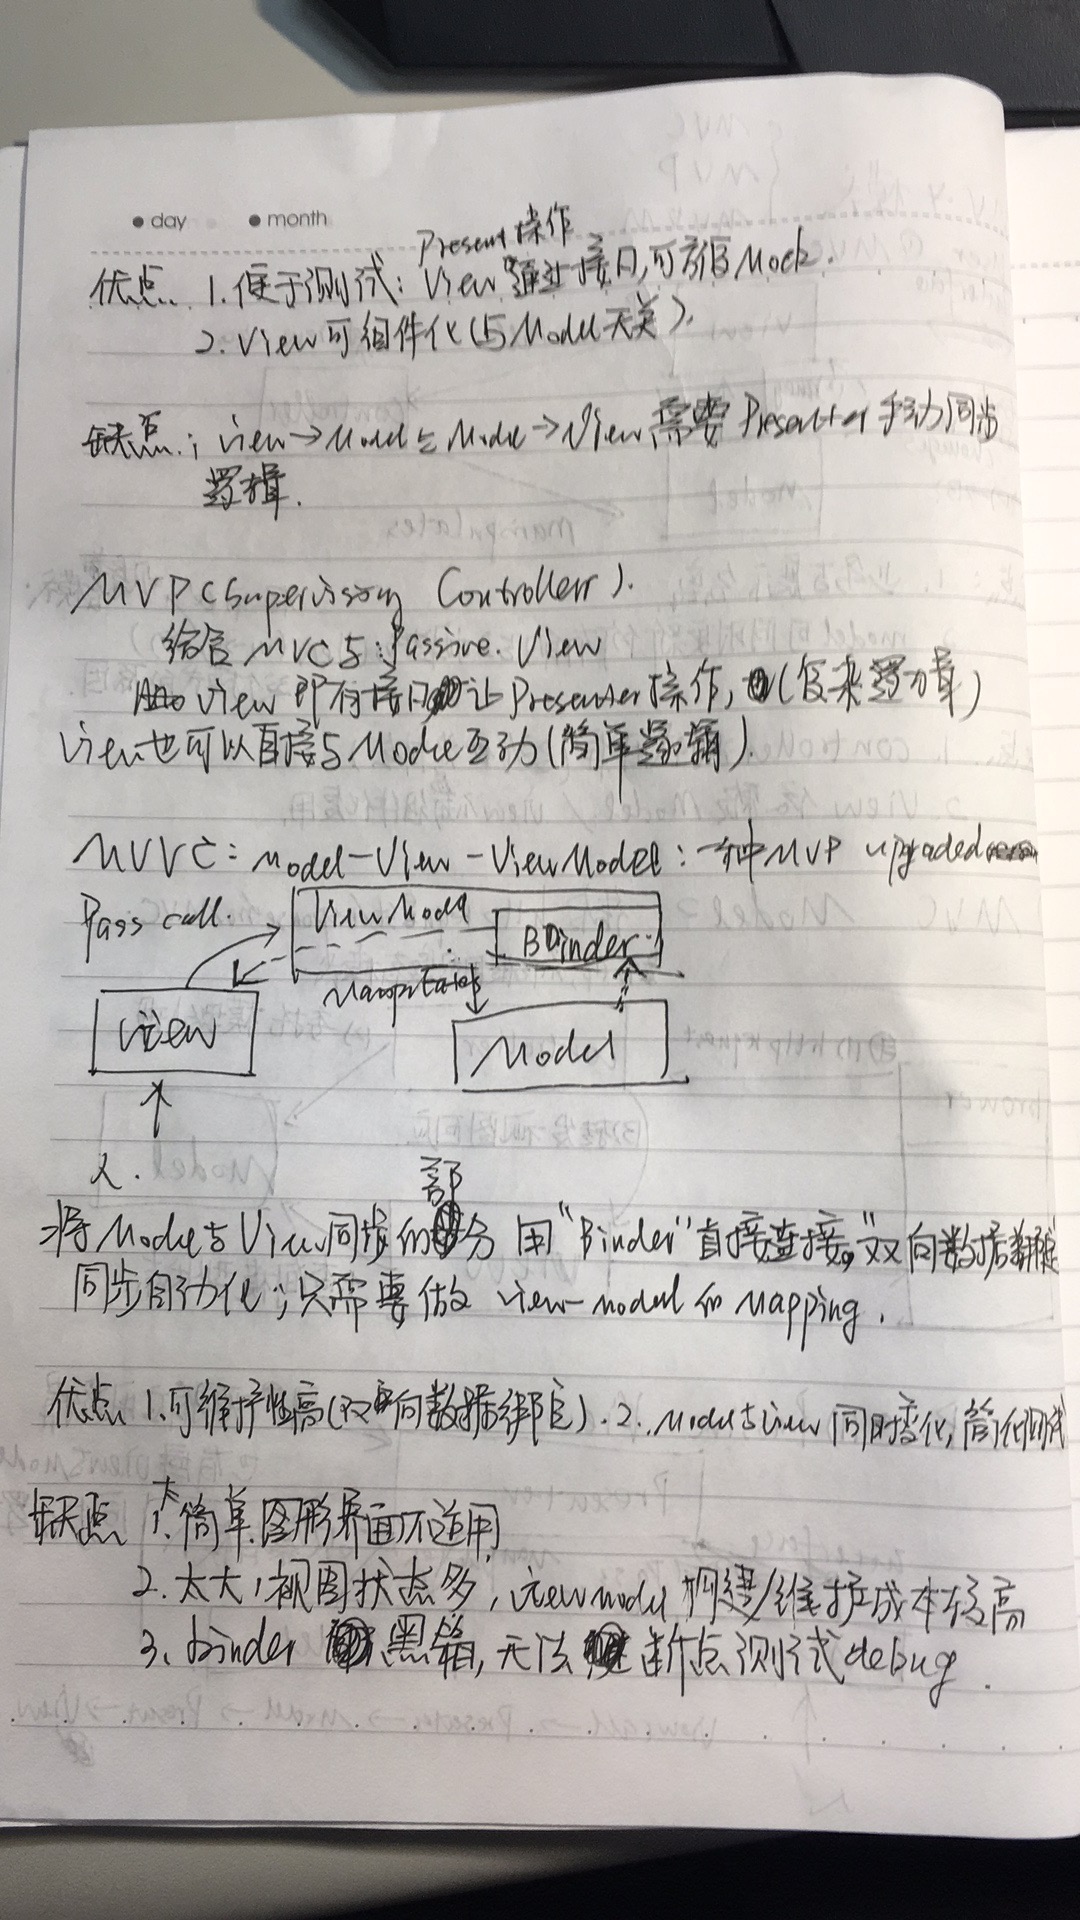 day month
Present操作
优点 1. 便于测试: View通过接口,可方便Mock.
2. View可组件化(与Model无关).
缺点: View→Model与Model→View需要Presenter手动同步
逻辑.
MVP (Supervisiong Controller).
结合MVC与Passive View
View即有接口让Presenter操作,(复杂逻辑)
View也可以直接与Model互动(简单逻辑).
MVVC: Model-View-ViewModel: 一种MVP upgraded
Pass call.
ViewModel
Binder
Manipulates
View
Model
人.
部
将Model与View同步的分用"Binder"直接连接。"双向数据绑定
同步自动化;只需要做 view-model的Mapping.
优点 1.可维护性高(双向数据绑定). 2. Model与View同时变化,简化测试
缺点 1.简单图形界面不适用
2. 太大,视图状态多, viewmodel构建/维护成本较高
3. binder 黑箱, 无法断点测试debug.